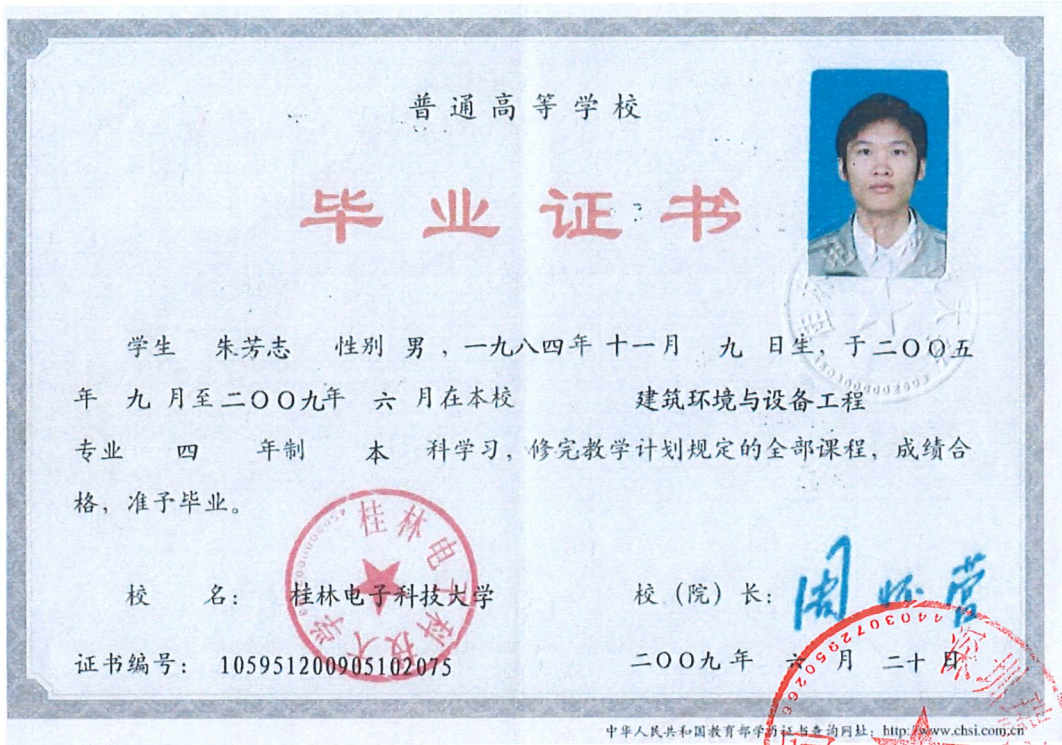 普通高等学校
毕业证书
学生 朱芳志 性别 男 ，一九八四年 十一月 九 日生，于二〇〇五
年 九 月至二〇〇九年 六 月在本校 建筑环境与设备工程
专业 四 年制 本 科学习，修完教学计划规定的全部课程，成绩合
格，准予毕业。
桂林电子科技大学
校 名： 桂林电子科技大学
校（院）长： 周怀营
证书编号： 105951200905102075
二〇〇九年 六 月 二十 日
4403072950266
深圳
中华人民共和国教育部学历证书查询网址：http://www.chsi.com.cn